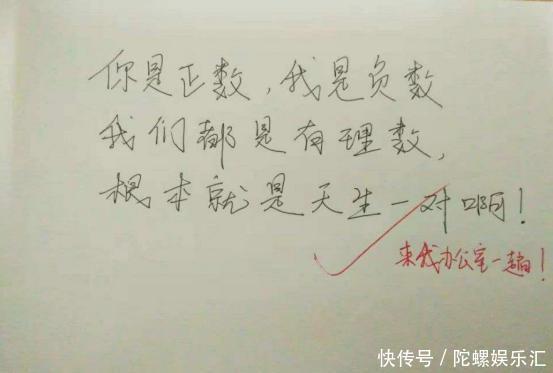 你是正数，我是负数
我们都是有理数，
根本就是天生一对啊！
来我办公室一趟！
快传号／陀螺娱乐汇